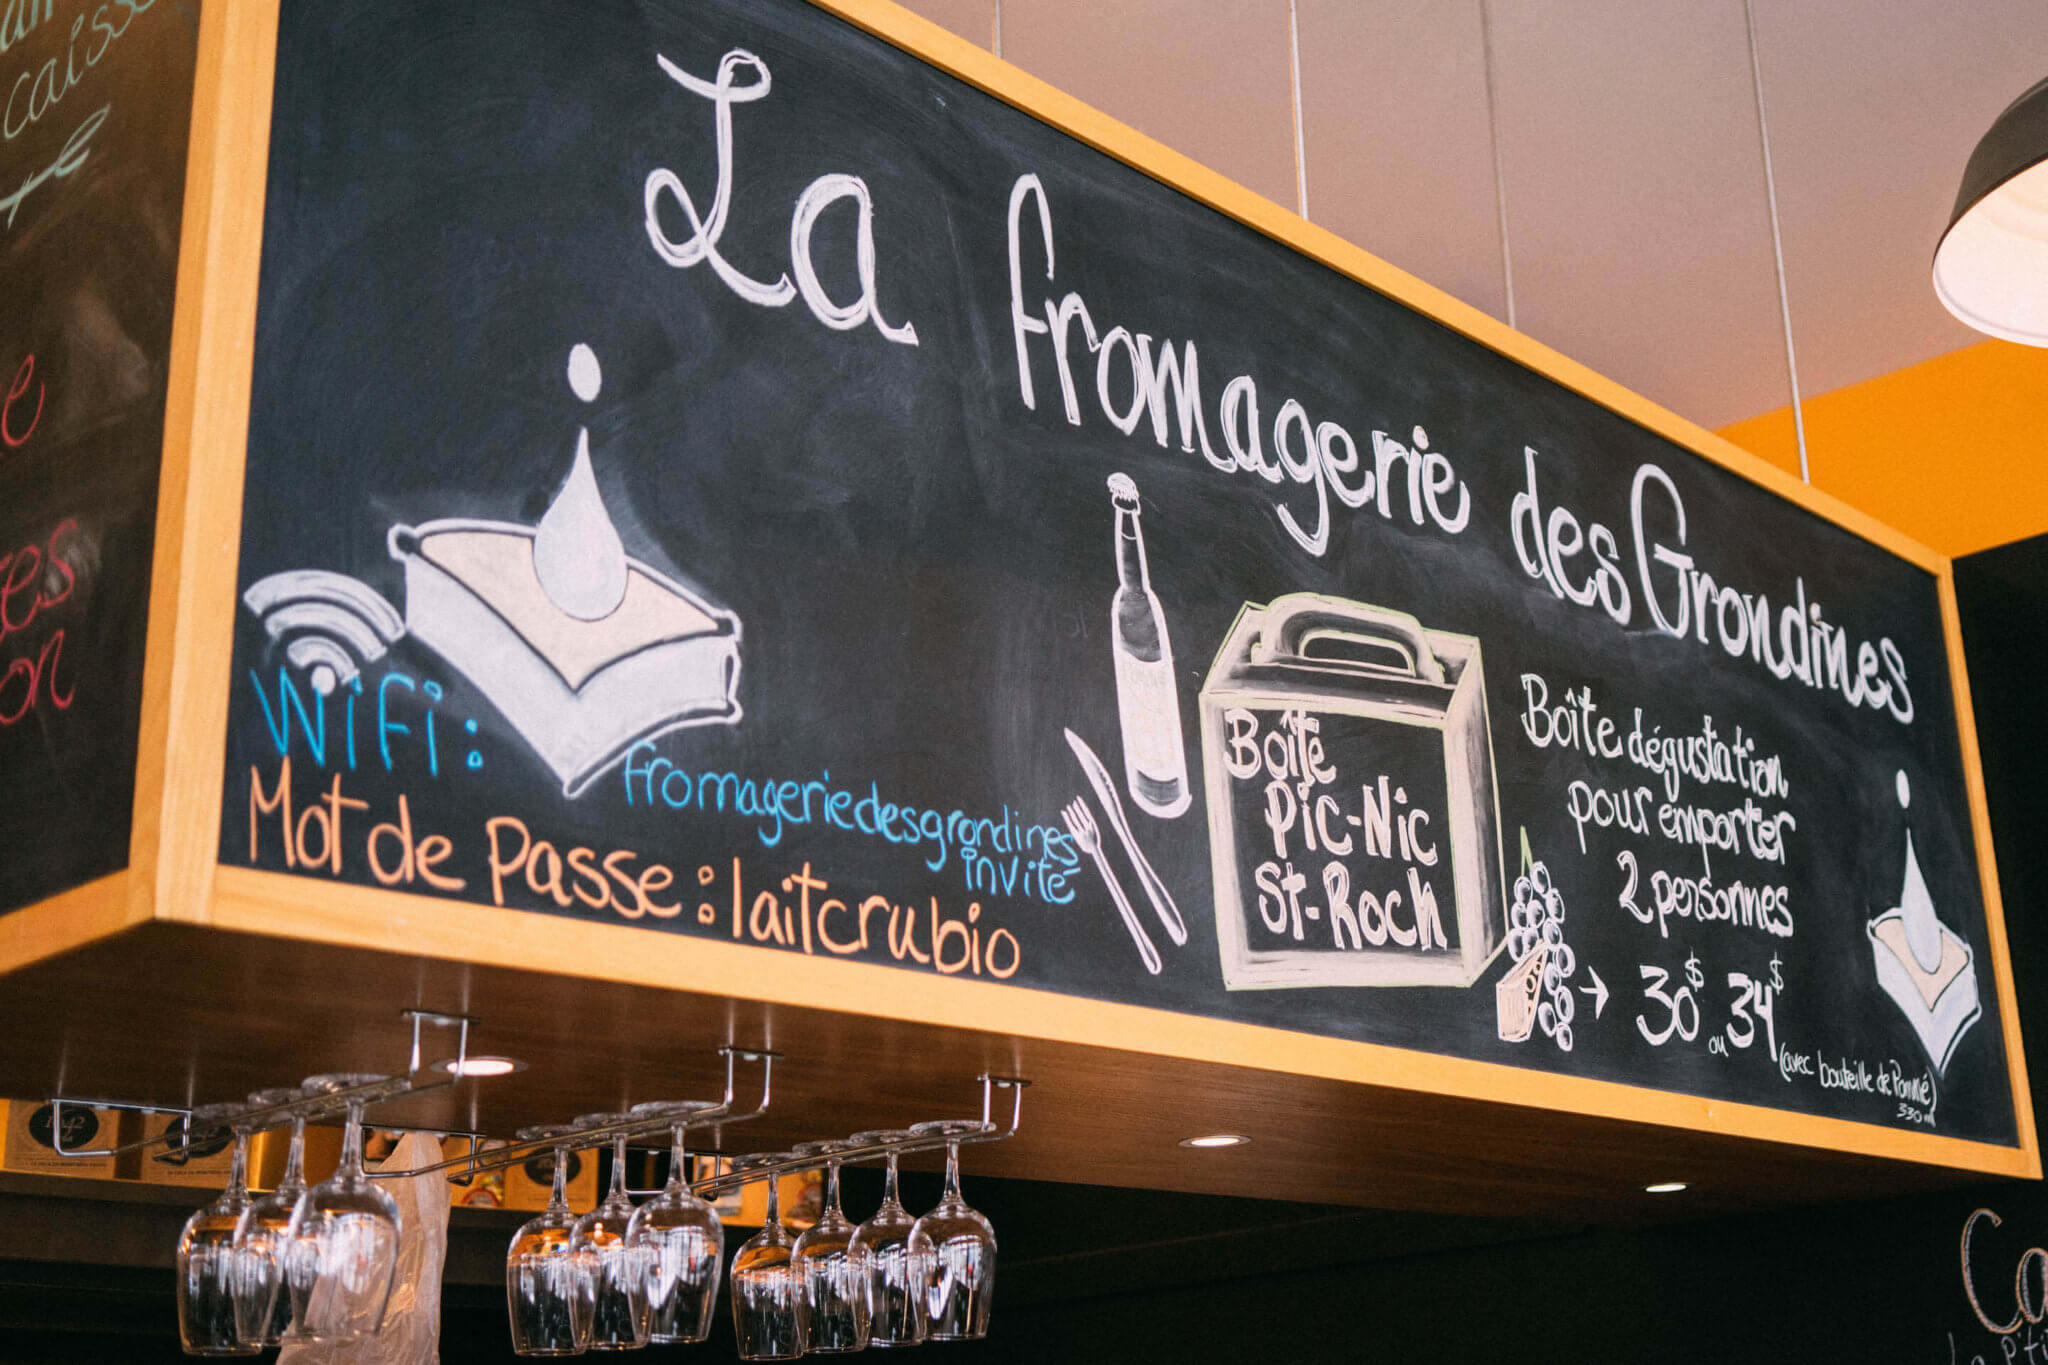 caisse
La fromagerie des Grondines
Wifi :
fromageriedesgrondines
invité
Mot de Passe : laitcrubio
Boîte
Pic-Nic
St-Roch
Boîte dégustation
pour emporter
2 personnes
→ 30$ ou 34$
(avec bouteille de Pommé)
330 ml
1642
1642